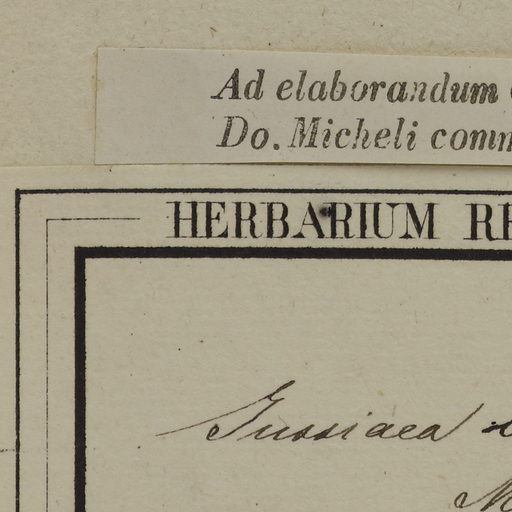 Ad elaborandum
Do. Micheli comm
HERBARIUM RE
Jussiaea
M